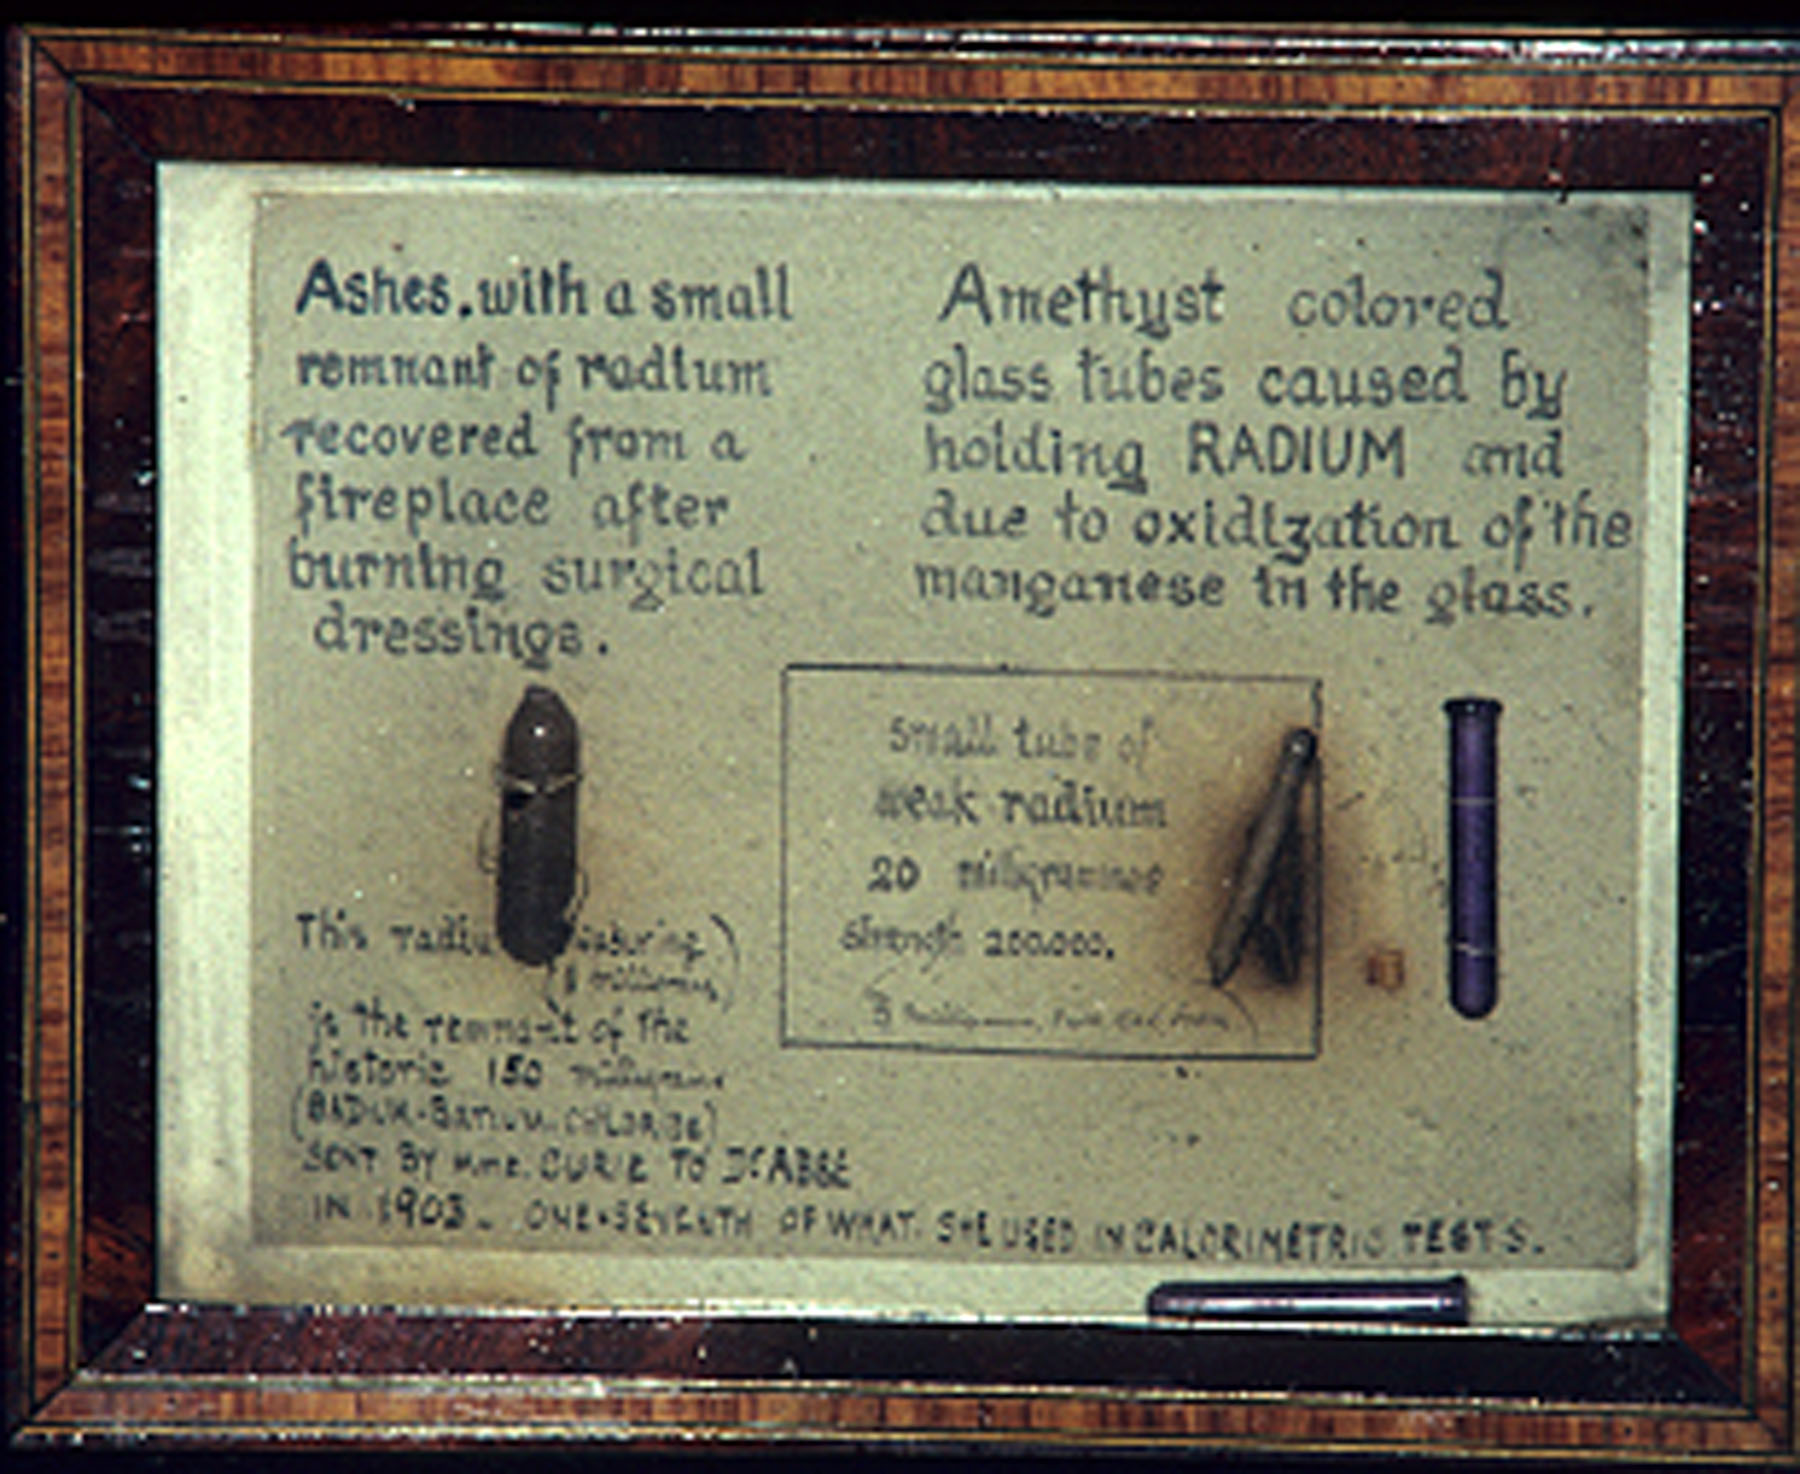 Ashes, with a small
remnant of radium
recovered from a
fireplace after
burning surgical
dressings.
Amethyst colored
glass tubes caused by
holding RADIUM and
due to oxidization of the
manganese in the glass.
Small tube of
weak radium
20 milligrammes
Strength 200.000.
This
is the remnant of the
historic 150
(RADIUM-BARIUM-CHLORIDE)
SENT BY Mme. CURIE TO Dr ABBE
IN 1903. ONE-SEVENTH OF WHAT SHE USED IN CALORIMETRIC TESTS.